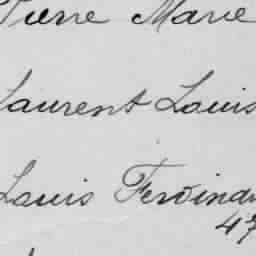 Pierre Marie
Laurent Louis
Louis Ferdinan
47